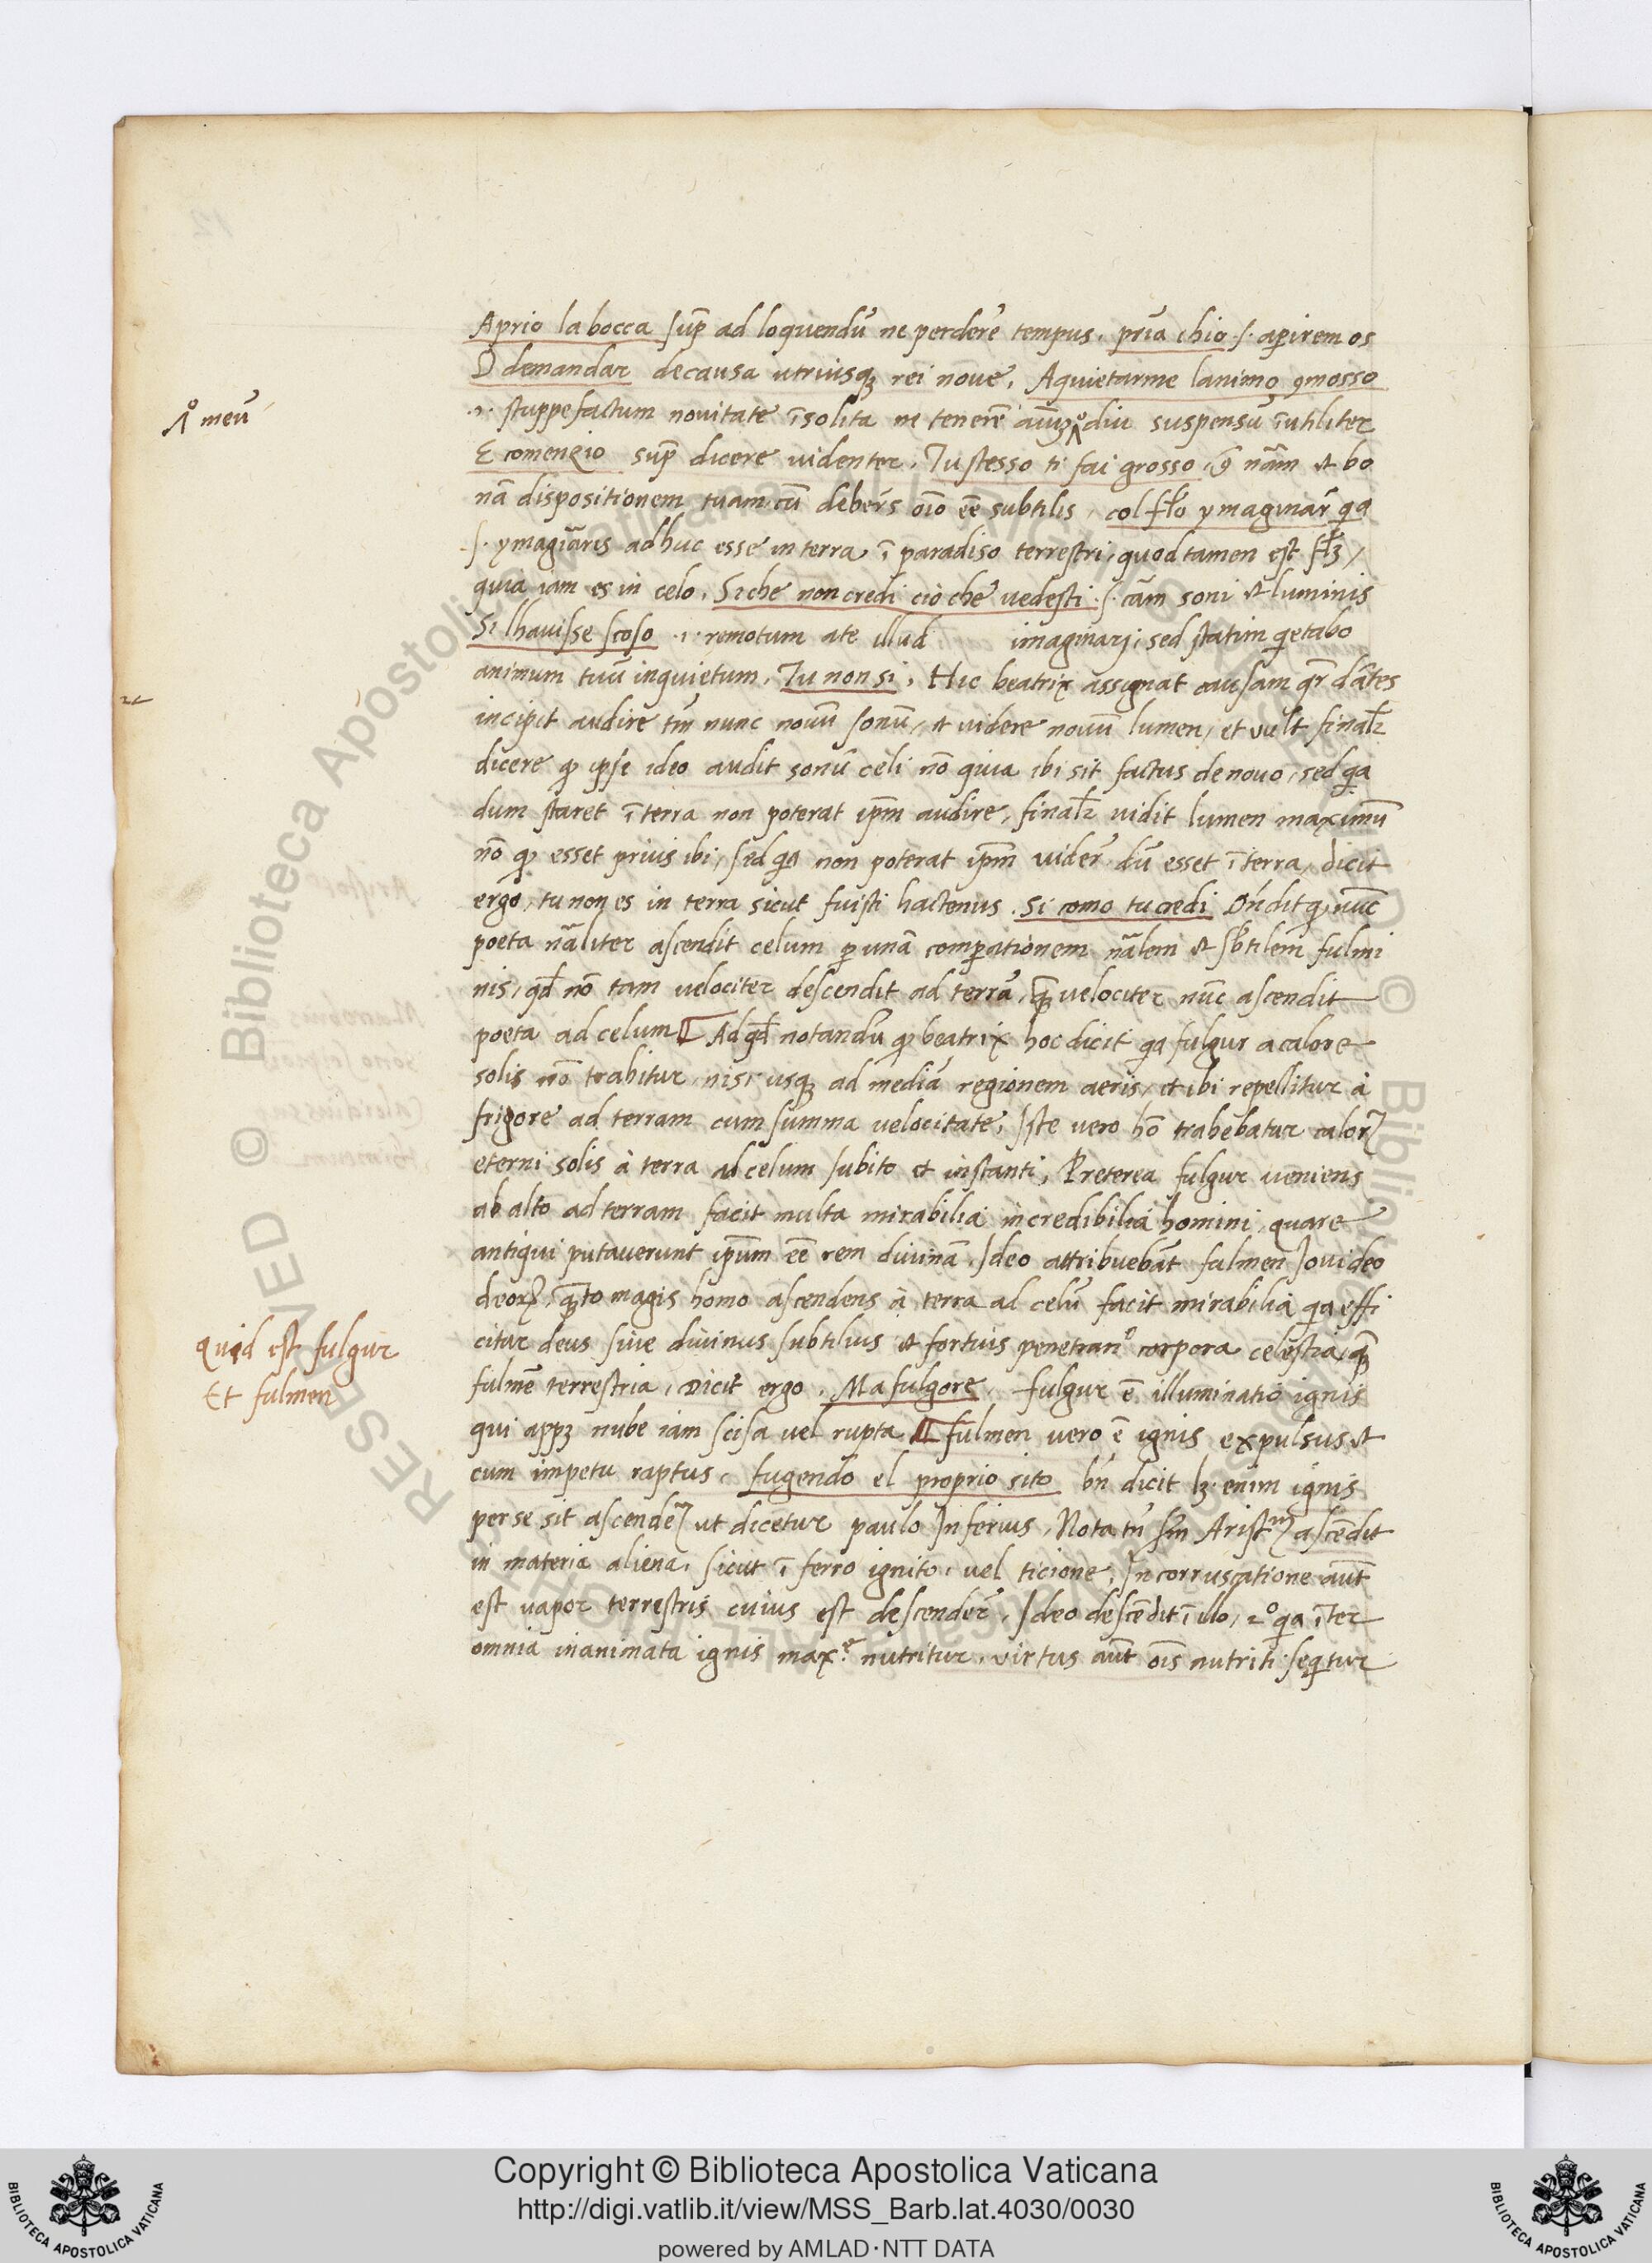 Aprio la bocca sup̄ ad loquendū ne perderē tempus. prīa chio .s. aperirem os
D demandar de causa utriusqꝫ rei noue. Aquietarme lanimo ꝯmosso
.i. stuppefactum novitate īsolita ne tenerē aīuꝫ diu suspensū īutiliter
ʌ meū
E comenzio sup̄ dicere videnter. Tu stesso ti fai grosso, ꝯ̄ nām et bo
nā dispositionem tuam cū deberēs oīo eē subtilis. col flo ymaginār qa
.s. ymagīaris adhuc esse in terra, ī paradiso terrestri, quod tamen est flꝫ,
quia iam es in celo. Si che non credi ciò che vedesti .s. cām soni et luminis
Si lhavisse scoso .i. remotum ate illud imaginarj, sed statim qetabo
animum tuū inquietum. Tu non si. Hic beatrix assignat causam qr̄ dātes
incipit audire tm̄ nunc nouū sonū, et videre nouū lumen, et vult finalr̄
dicere ꝙ ipse ideo audit sonū celi nō quia ibi sit factus denouo, sed qa
dum staret ī terra non poterat ipm̄ audire, finalr̄ vidit lumen maximū
nō ꝙ esset prius ibi, sed qa non poterat ipm̄ viderē dū esset ī terra, dicit
ergo, tu non es in terra sicut fuisti hactenus. Si como tu credi Ōndit ꝙ nūc
poeta nāliter ascendit celum p unā comparationem nālem et sbtilem fulmi
nis, qđ nō tam velociter descendit ad terrā, qꝫ velociter nūc ascendit
poeta ad celum ¶ Ad qđ notandū ꝙ beatrix hoc dicit qa fulgur a calore
solis nō trahitur nisi usqꝫ ad mediā regionem aeris, et ibi repellitur à
frigore ad terram cum summa velocitate, Iste vero hō trahebatur calorꝫ
eterni solis à terra ad celum subito et instanti, Preterea fulgur veniens
ab alto ad terram facit multa mirabilia incredibilia homini, quare
antiqui putaverunt ipum̄ eē rem divinā. Ideo attribuebāt fulmen Ioui deo
deorꝫ, qꝫto magis homo ascendens à terra ad celū facit mirabilia qa effi
citur deus sive divinus subtilius et fortius penetranº corpora celestia, qꝫ
Quid est fulgur
Et fulmen
fulmē terrestria. Dicit ergo. Ma fulgore. fulgur ē illuminatio ignis
qui appꝫ nube iam scisa vel rupta ¶ fulmen vero ē ignis expulsus et
cum impetu raptus. fugendo el proprio sito bn̄ dicit lꝫ enim ignis
per se sit ascendeꝫ ut dicetur paulo Inferius. Nota tn̄ sm̄ Aristꝫ ascēdit
in materia aliena, sicut ī ferro ignito, vel ticione, In corruscatione aūt
est vapor terrestris cuius est descenderē. Ideo descēdit ī illo, 2º qa īter
omnia inanimata ignis maxᵉ nutritur, virtus aūt oīs nutriti seqitur